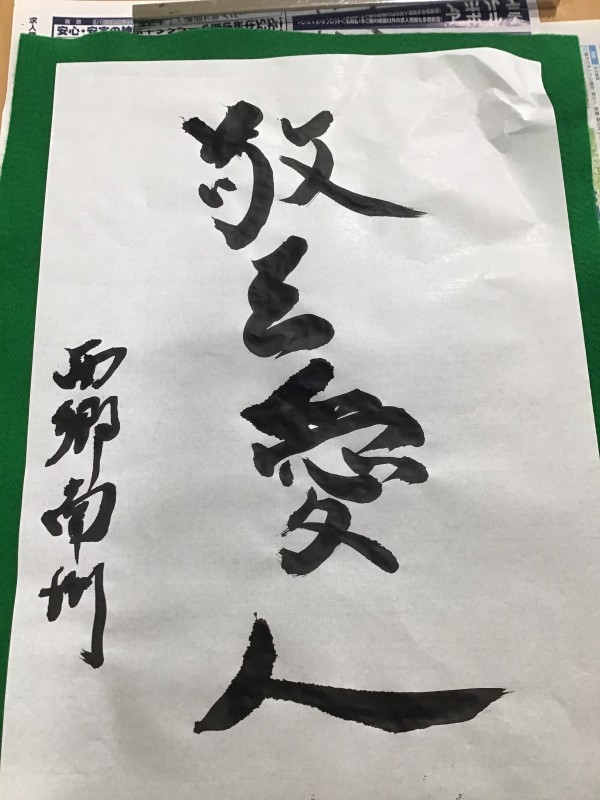 敬天愛人
西郷南州
安心・安定の
求人